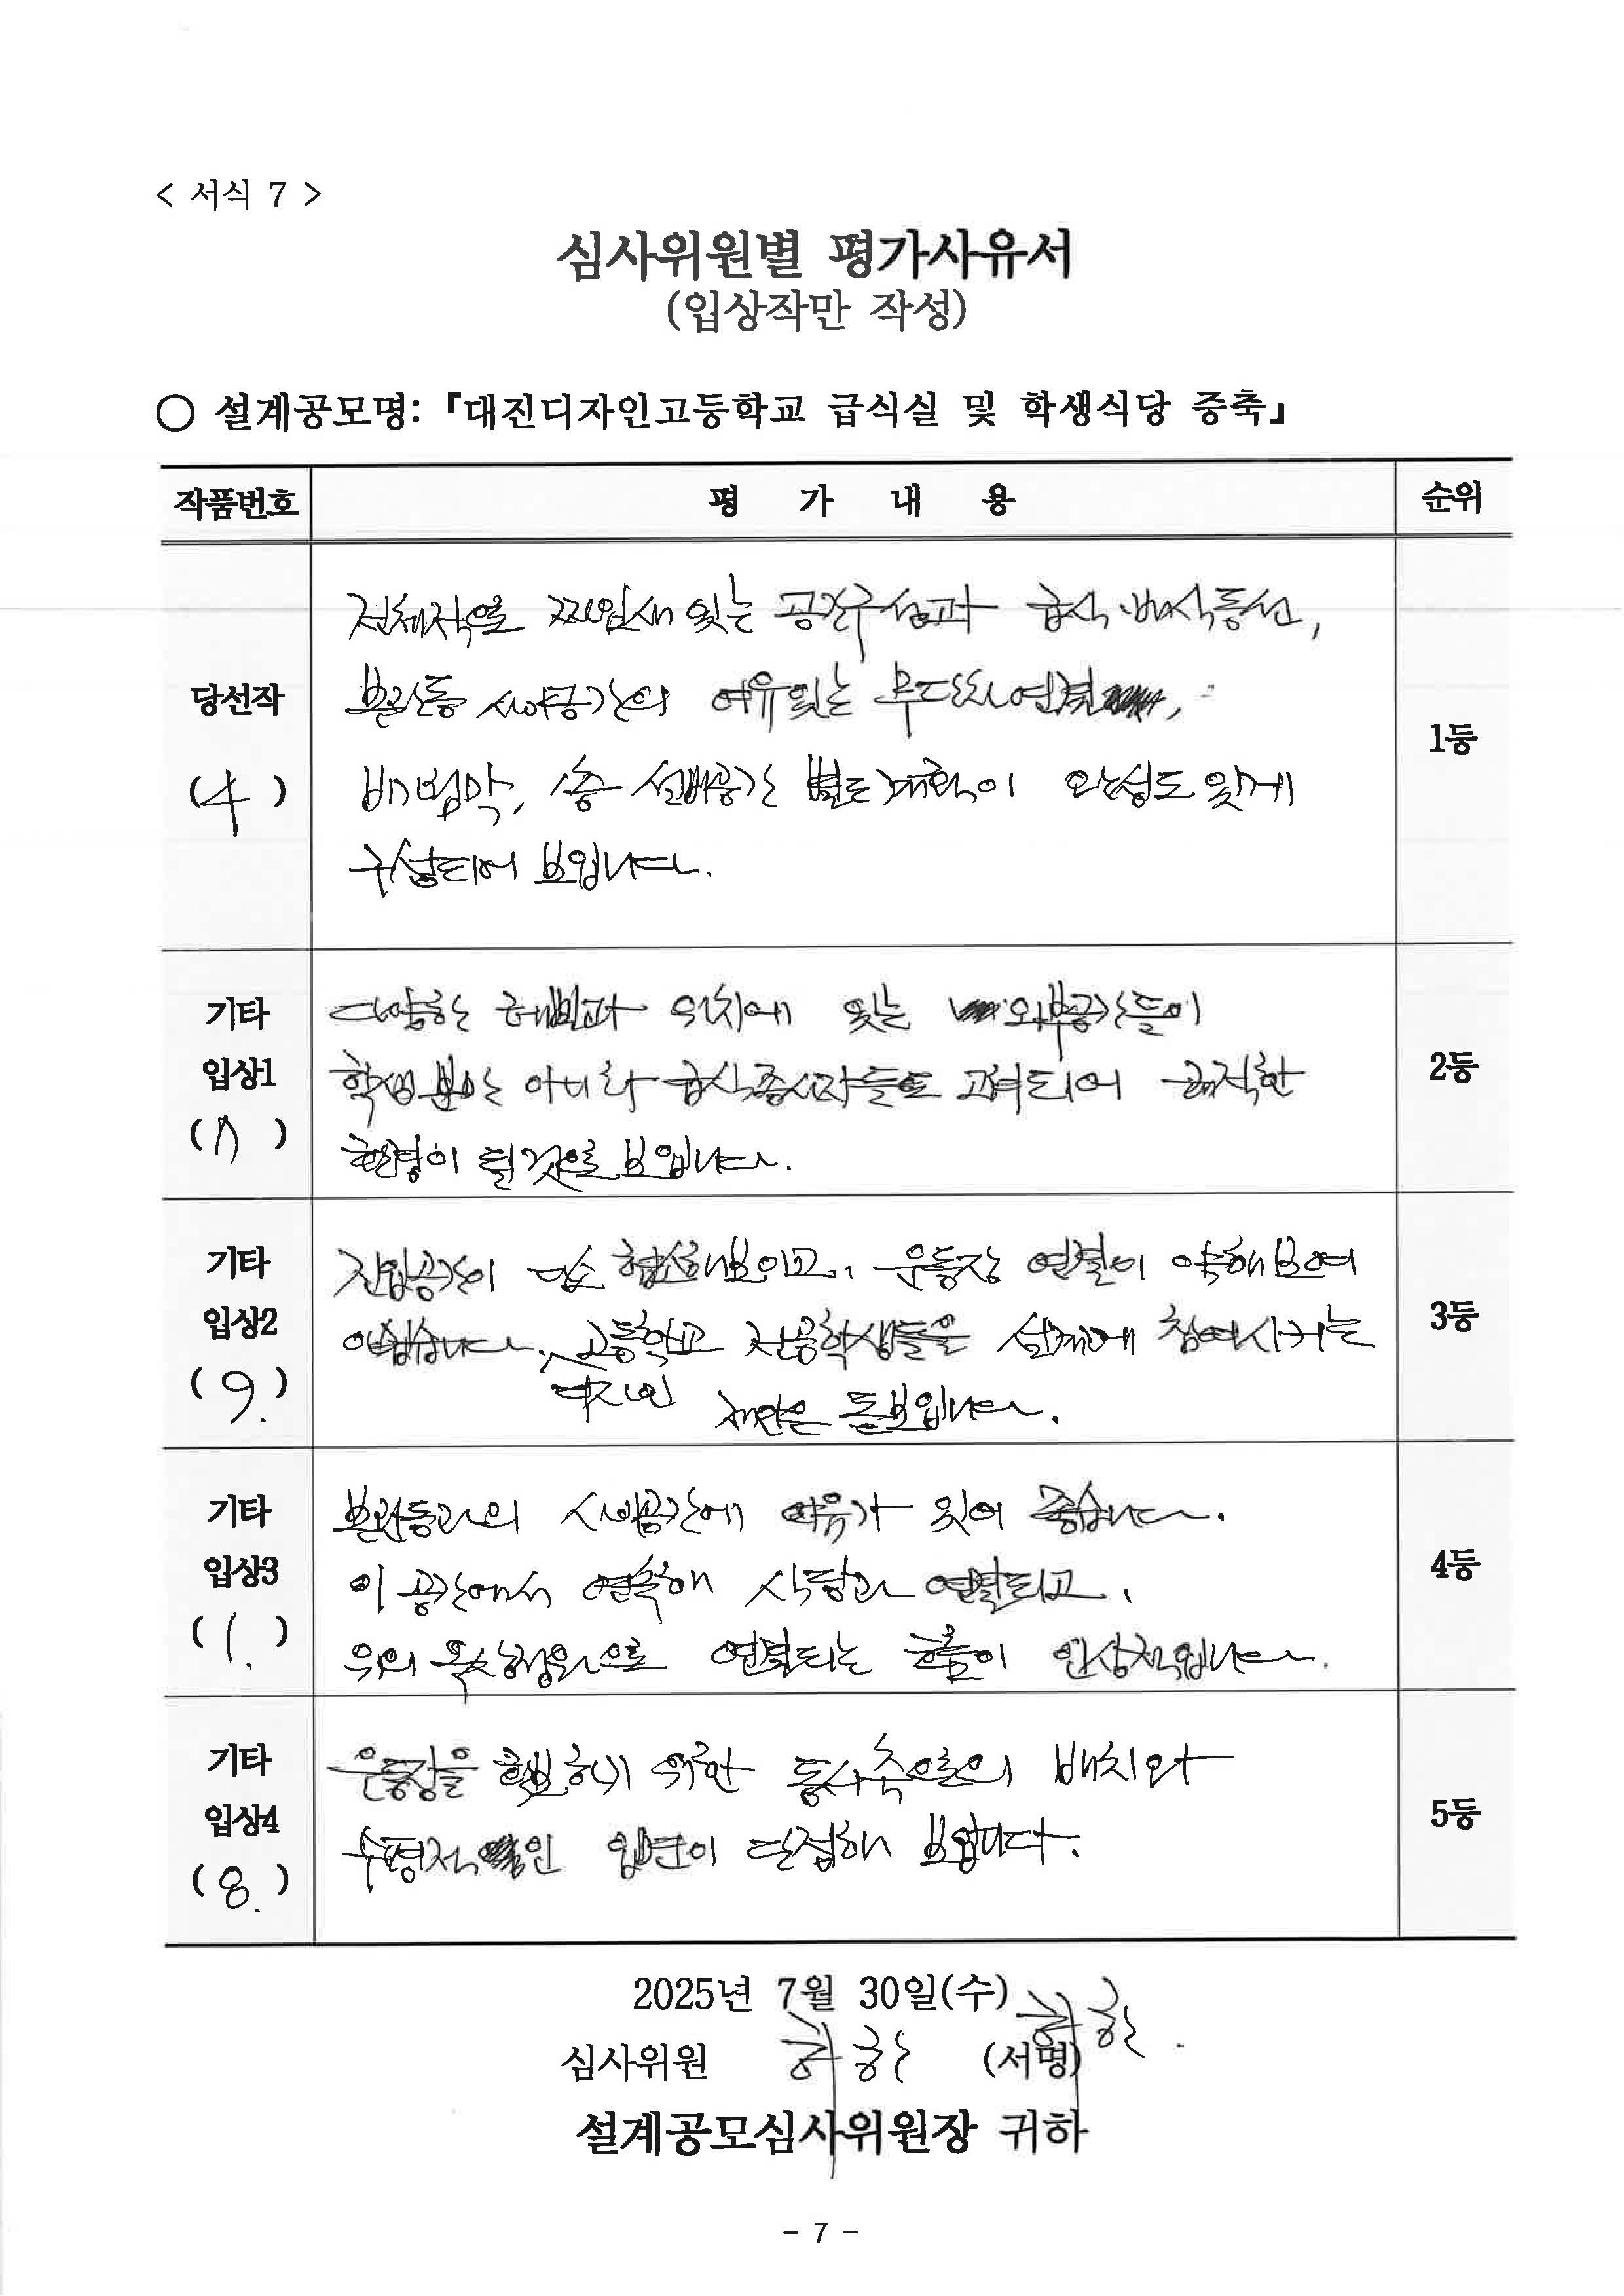 < 서식 7 >
심사위원별 평가사유서
(입상작만 작성)
○ 설계공모명: 『대진디자인고등학교 급식실 및 학생식당 증축』
작품번호 평 가 내 용 순위
당선작
(4)
전체적으로 짜임새 있는 공간구성과 급식·배식동선,
본관동 사이공간의 여유있는 무단차연결,
배면막, 층 설비공간 별도계획이 완성도 있게
구성되어 보입니다.
1등
기타
입상1
(7)
다양한 레벨과 위치에 있는 외부공간들이
학생뿐만 아니라 급식종사자들도 고려되어 쾌적한
환경이 될것으로 보입니다.
2등
기타
입상2
(9.)
진입공간이 다소 협소해보이고, 운동장 연결이 약해보여
아쉽습니다. 고등학교 전공학생들을 설계에 참여시키는
디자인 제안은 돋보입니다.
3등
기타
입상3
(1.)
본관동과의 사이공간에 여유가 있어 좋습니다.
이 공간에서 연속해 식당과 연결되고,
위의 옥상정원으로 연결되는 흐름이 인상적입니다.
4등
기타
입상4
(8.)
운동장을 확보하기 위한 동서축으로의 배치와
수평적인 입면이 단정해 보입니다.
5등
2025년 7월 30일(수)
심사위원 허한 (서명) 허한.
설계공모심사위원장 귀하
- 7 -